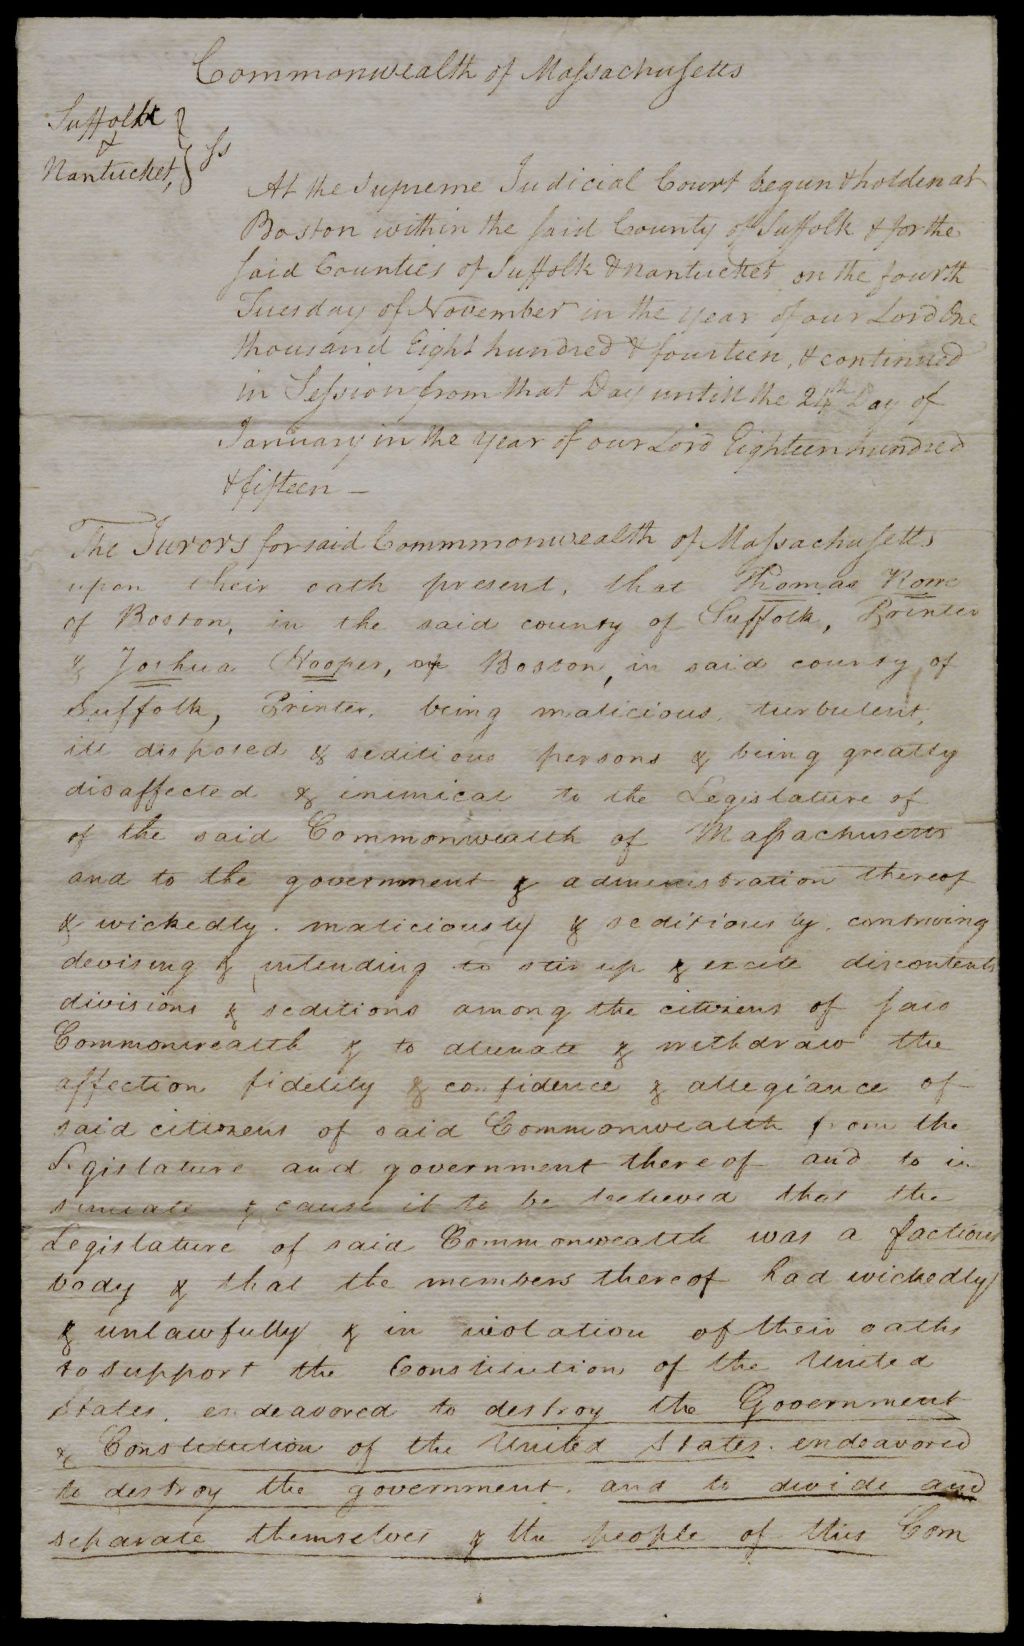 Commonwealth of Massachusetts
Suffolk
&
Nantucket, } ss
At the Supreme Judicial Court begun & holden at
Boston within the said County of Suffolk & for the
said Counties of Suffolk & Nantucket on the fourth
Tuesday of November in the year of our Lord One
thousand Eight hundred & fourteen, & continued
in Session from that Day untill the 24th Day of
January in the year of our Lord Eighteen hundred
& fifteen —
The Jurors for said Commmonwealth of Massachusetts
upon their oath present, that Thomas Rowe
of Boston, in the said county of Suffolk, Printer
& Joshua Hooper, of Boston, in said county of
Suffolk, Printer, being malicious, turbulent,
ill disposed & seditious persons & being greatly
disaffected & inimical to the Legislature of
of the said Commonwealth of Massachusetts
and to the government & administration thereof
& wickedly. maliciously & seditiously, contriving
devising & intending to stir up & excite discontents
divisions & seditions among the citizens of said
Commonwealth & to alienate & withdraw the
affection fidelity & confidence & allegiance of
said citizens of said Commonwealth from the
Legislature and government thereof and to in
sinuate & cause it to be believed that the
Legislature of said Commonwealth was a factious
body & that the members thereof had wickedly
& unlawfully & in violation of their oaths
to support the Constitution of the United
States, endeavored to destroy the Government
& Constitution of the United States. endeavored
to destroy the government. and to divide and
separate themselves & the people of this Com